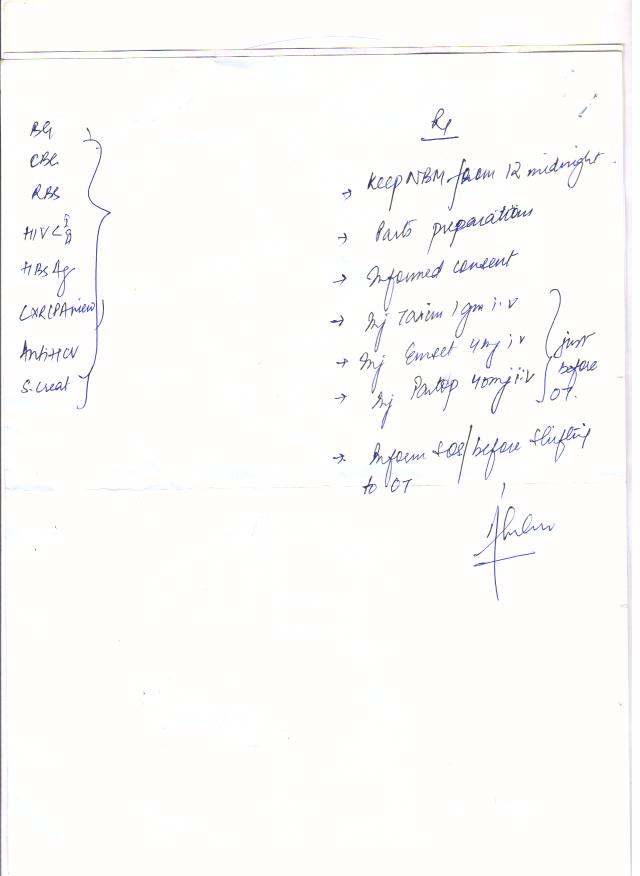 BG
CBC
RBS
HIV < I II
HBsAg
CXR (PA view)
Anti HCV
S. Creat
Rx
→ Keep NBM from 12 midnight.
→ Parts preparations
→ Informed consent
→ Inj Taxim 1gm i.v
→ Inj Emset 4mg i.v
→ Inj Pantop 40mg i.v
just before OT.
→ Inform SOS/before Shifting
to OT